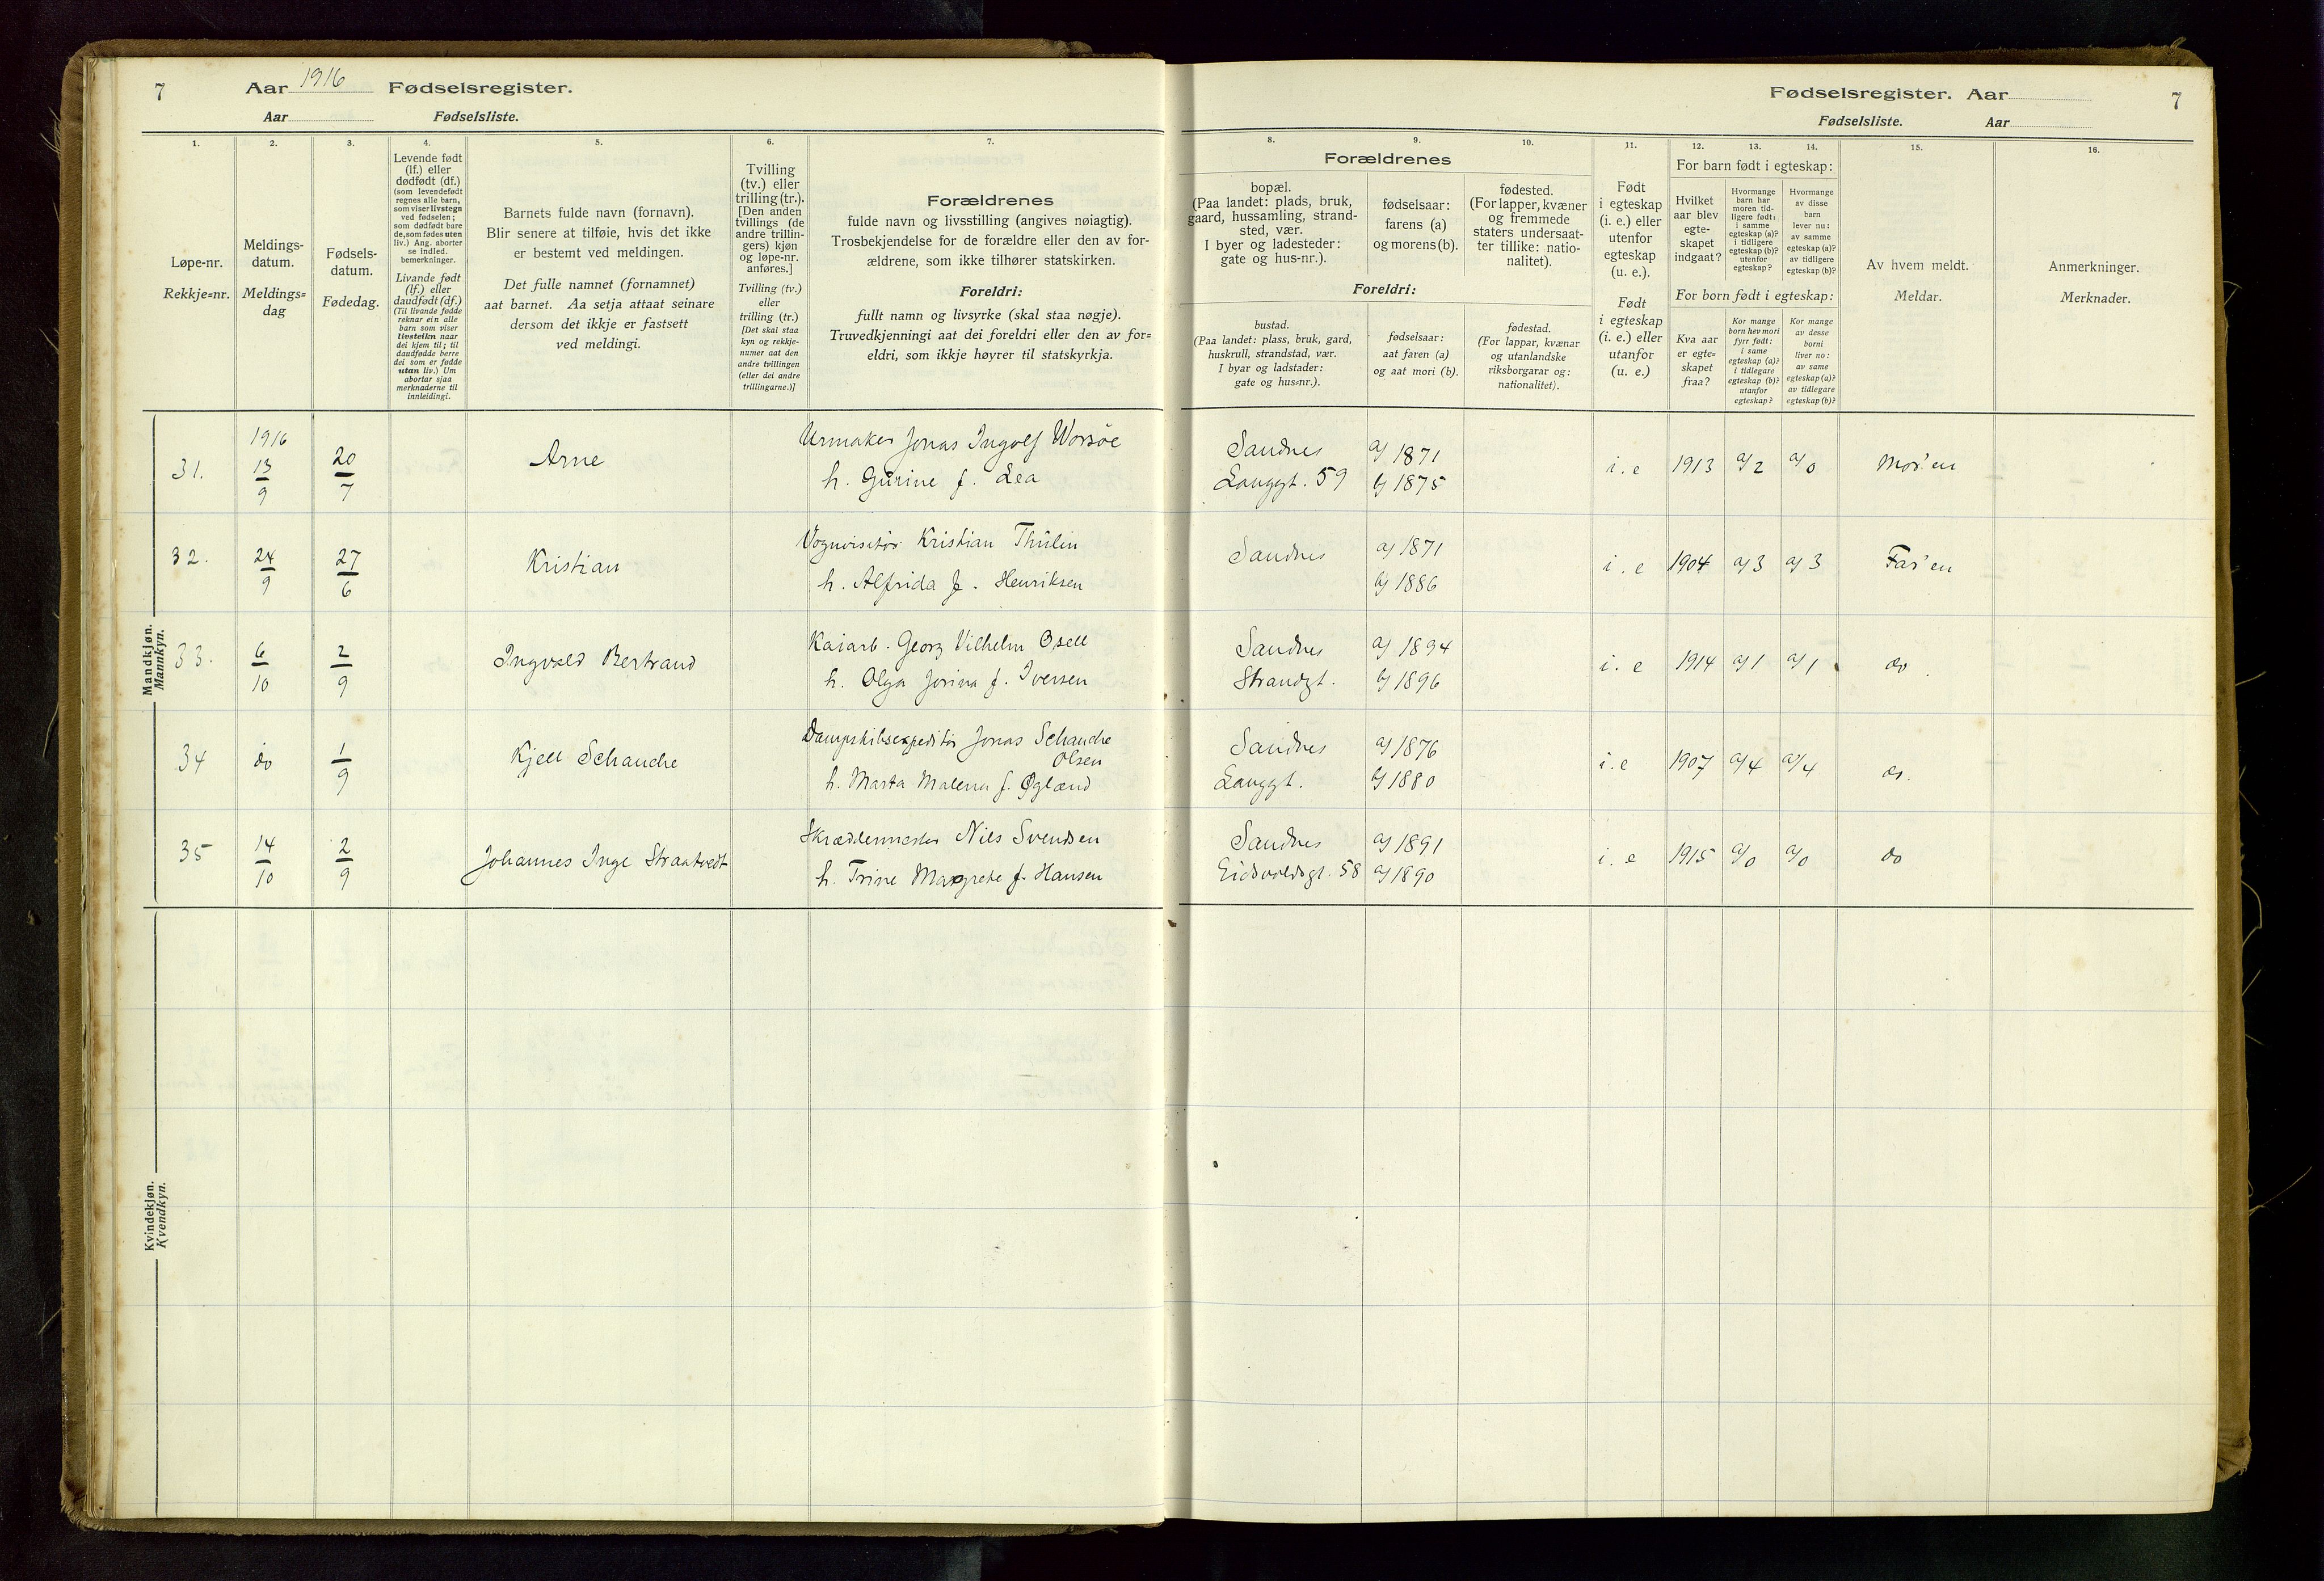 7 Aar 1916 Fødselsregister.
Aar Fødselsliste.
Fødselsregister. Aar 7
Fødselsliste. Aar
1. 2. 3. 4. 5. 6. 7. 8. 9. 10. 11. 12. 13. 14. 15. 16.
Løpe-nr.
Rekkje=nr.
Meldings-
datum.
Meldings=
dag
Fødsels-
datum.
Fødedag.
Levende født
(lf.) eller
dødfødt (df.)
(som levendefødt
regnes alle barn,
som viser livstegn
ved fødselen;
som dødfødt bare
de, som fødes uten
liv.) Ang. aborter
se indled.
bemerkninger.
Livande født
(lf.) eller
daudfødt (df.)
(Til livande fødde
reknar ein alle
barn som viser
livsteikn naar
dei kjem til; til
daudfødde berre
dei som er fødde
utan liv.) Um
abortar sjaa
merknaderne til
innleidingi.
Barnets fulde navn (fornavn).
Blir senere at tilføie, hvis det ikke
er bestemt ved meldingen.
Det fulle namnet (fornamnet)
aat barnet. Aa setja attaat seinare
dersom det ikkje er fastsett
ved meldingi.
Tvilling
(tv.) eller
trilling (tr.).
[Den anden
tvillings (de
andre trillin-
gers) kjøn
og løpe-nr.
anføres.]
Tvilling (tv.)
eller
trilling (tr.)
[Det skal staa
kyn og rekkje-
numer aat den
andre tvillingen
(eller dei andre
trillingarne.)]
Forældrenes
fulde navn og livsstilling (angives nøiagtig).
Trosbekjendelse for de forældre eller den av for-
ældrene, som ikke tilhører statskirken.
Foreldri:
fullt namn og livsyrke (skal staa nøgje).
Truvedkjenningi aat dei foreldri eller den av for=
eldri, som ikkje høyrer til statskyrkja.
Forældrenes
bopæl.
(Paa landet: plads, bruk,
gaard, hussamling, strand-
sted, vær.
I byer og ladesteder:
gate og hus-nr.).
fødselsaar:
farens (a)
og morens (b).
fødested.
(For lapper, kvæner
og fremmede
staters undersaat-
ter tillike: natio-
nalitet).
Foreldri:
bustad.
(Paa landet: plass, bruk, gard,
huskrull, strandstad, vær.
I byar og ladstader:
gate og hus=nr.).
fødselsaar:
aat faren (a)
og aat mori (b).
fødestad.
(For lappar, kvænar
og utanlandske
riksborgarar og:
nationalitet).
Født
i egteskap
(i. e.) eller
utenfor
egteskap
(u. e.).
Født
i egteskap
(i. e.) eller
utanfor
(u. e.)
For barn født i egteskap:
Hvilket
aar blev
egte-
skapet
indgaat?
Hvormange
barn har
moren tid-
ligere født:
i samme
egteskap (a)?
i tidligere
egteskap (b)?
utenfor
egteskap?
Hvormange
av disse
barn
lever nu:
av samme
egteskap (a)?
av tidligere
egteskap (b)?
For born født i egteskap:
Kva aar
er egte=
skapet
fraa?
Kor mange
born hev mori
fyrr født:
i same
egteskap (a)?
i tidlegare
egteskap (b)?
utanfor
egteskap?
Kor mange
av desse
borni
liver no:
av same
egteskap (a)?
av tidlegare
egteskap (b)?
Av hvem meldt.
Meldar.
Anmerkninger.
Merknader.
Mandkjøn.
Mannkyn.
1916
31. 13/9 20/7 Arne Urmaker Jonas Ingolf Worsöe Sandnes a/ 1871 i. e 1913 a/2 a/0 Mor'en
h. Gurine f. Lea Langgt. 59 b/ 1875
32. 24/9 27/6 Kristian Vognvisitör Kristian Thulin Sandnes a/ 1871 i. e 1904 a/3 a/3 Far'en
h. Alfrida f. Henriksen b/ 1886
33. 6/10 2/9 Ingvald Bertrand Kaiarb. Georg Vilhelm Osell Sandnes a/ 1894 i. e 1914 a/1 a/1 do.
h. Olga Jorina f. Iversen Strandgt. b/ 1896
34 do 1/9 Kjell Schanche Dampskibsexpeditör Jonas Schanche Sandnes a/ 1876 i. e 1907 a/4 a/4 do.
Olsen
h. Marta Malena f. Øglænd Langgt. b/ 1880
35 14/10 2/9 Johannes Inge Straatvedt Skræddermester Nils Svendsen Sandnes a/ 1891 i. e 1915 a/0 a/0 do
h. Trine Margrete f. Hansen Eidsvoldsgt. 58 a/ 1890
Kvindekjøn.
Kvendkyn.